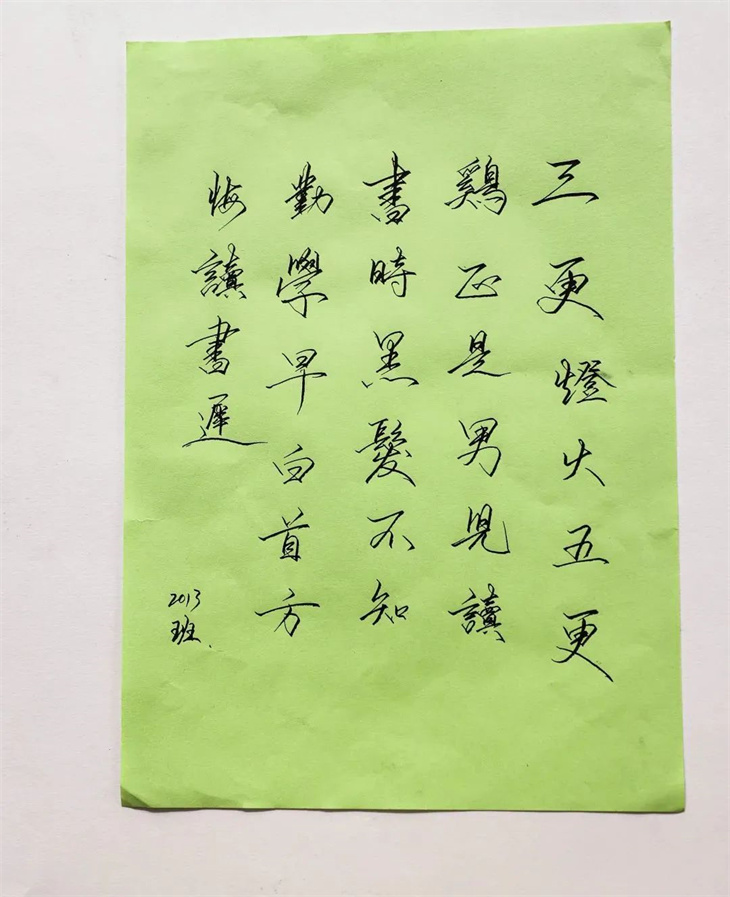 三更燈火五更
鷄正是男兒讀
書時黑髮不知
勤學早白首方
悔讀書遲
2013
班